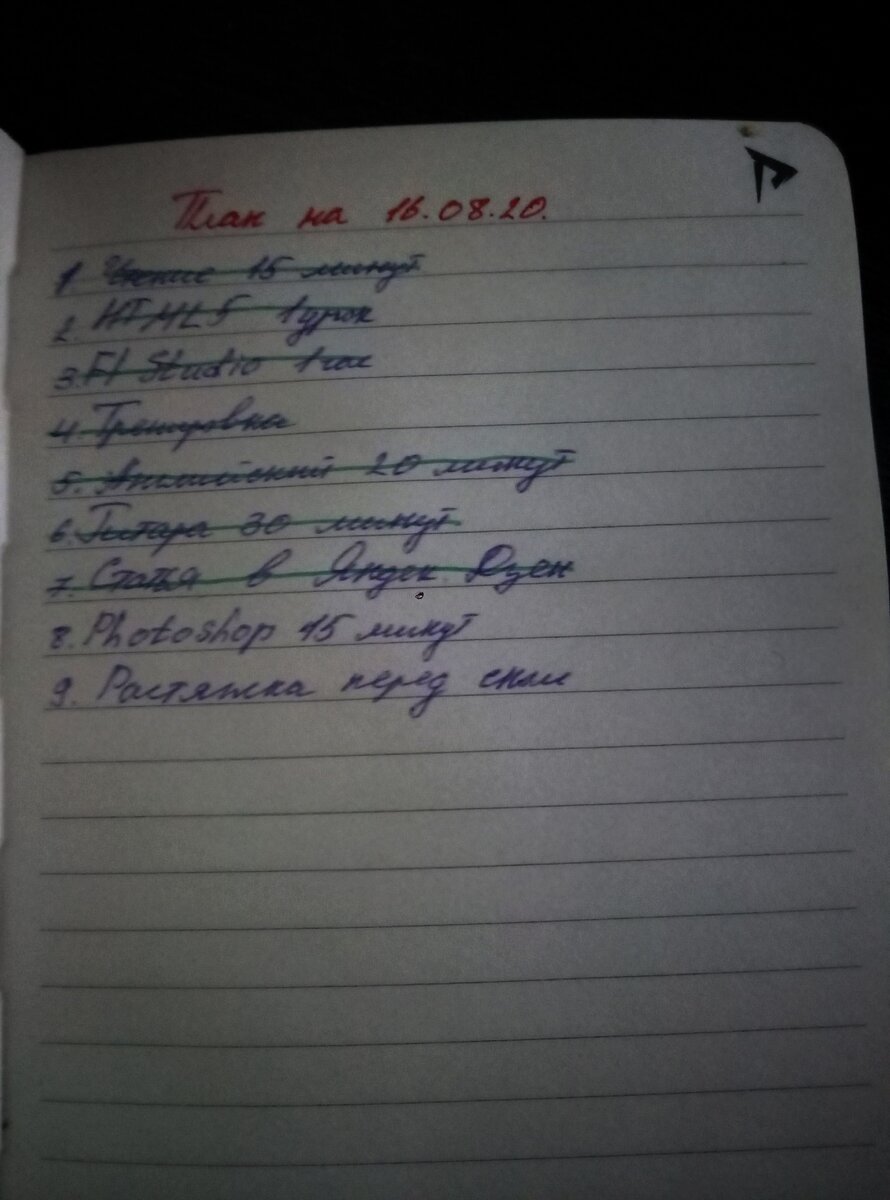 План на 16.08.20.
1. Чтение 15 минут
2. HTML5 1 урок
3. Fl Studio 1 час
4. Тренировка
5. Английский 20 минут
6. Гитара 30 минут
7. Статья в Яндек Дзен
8. Photoshop 15 минут
9. Растяжка перед сном